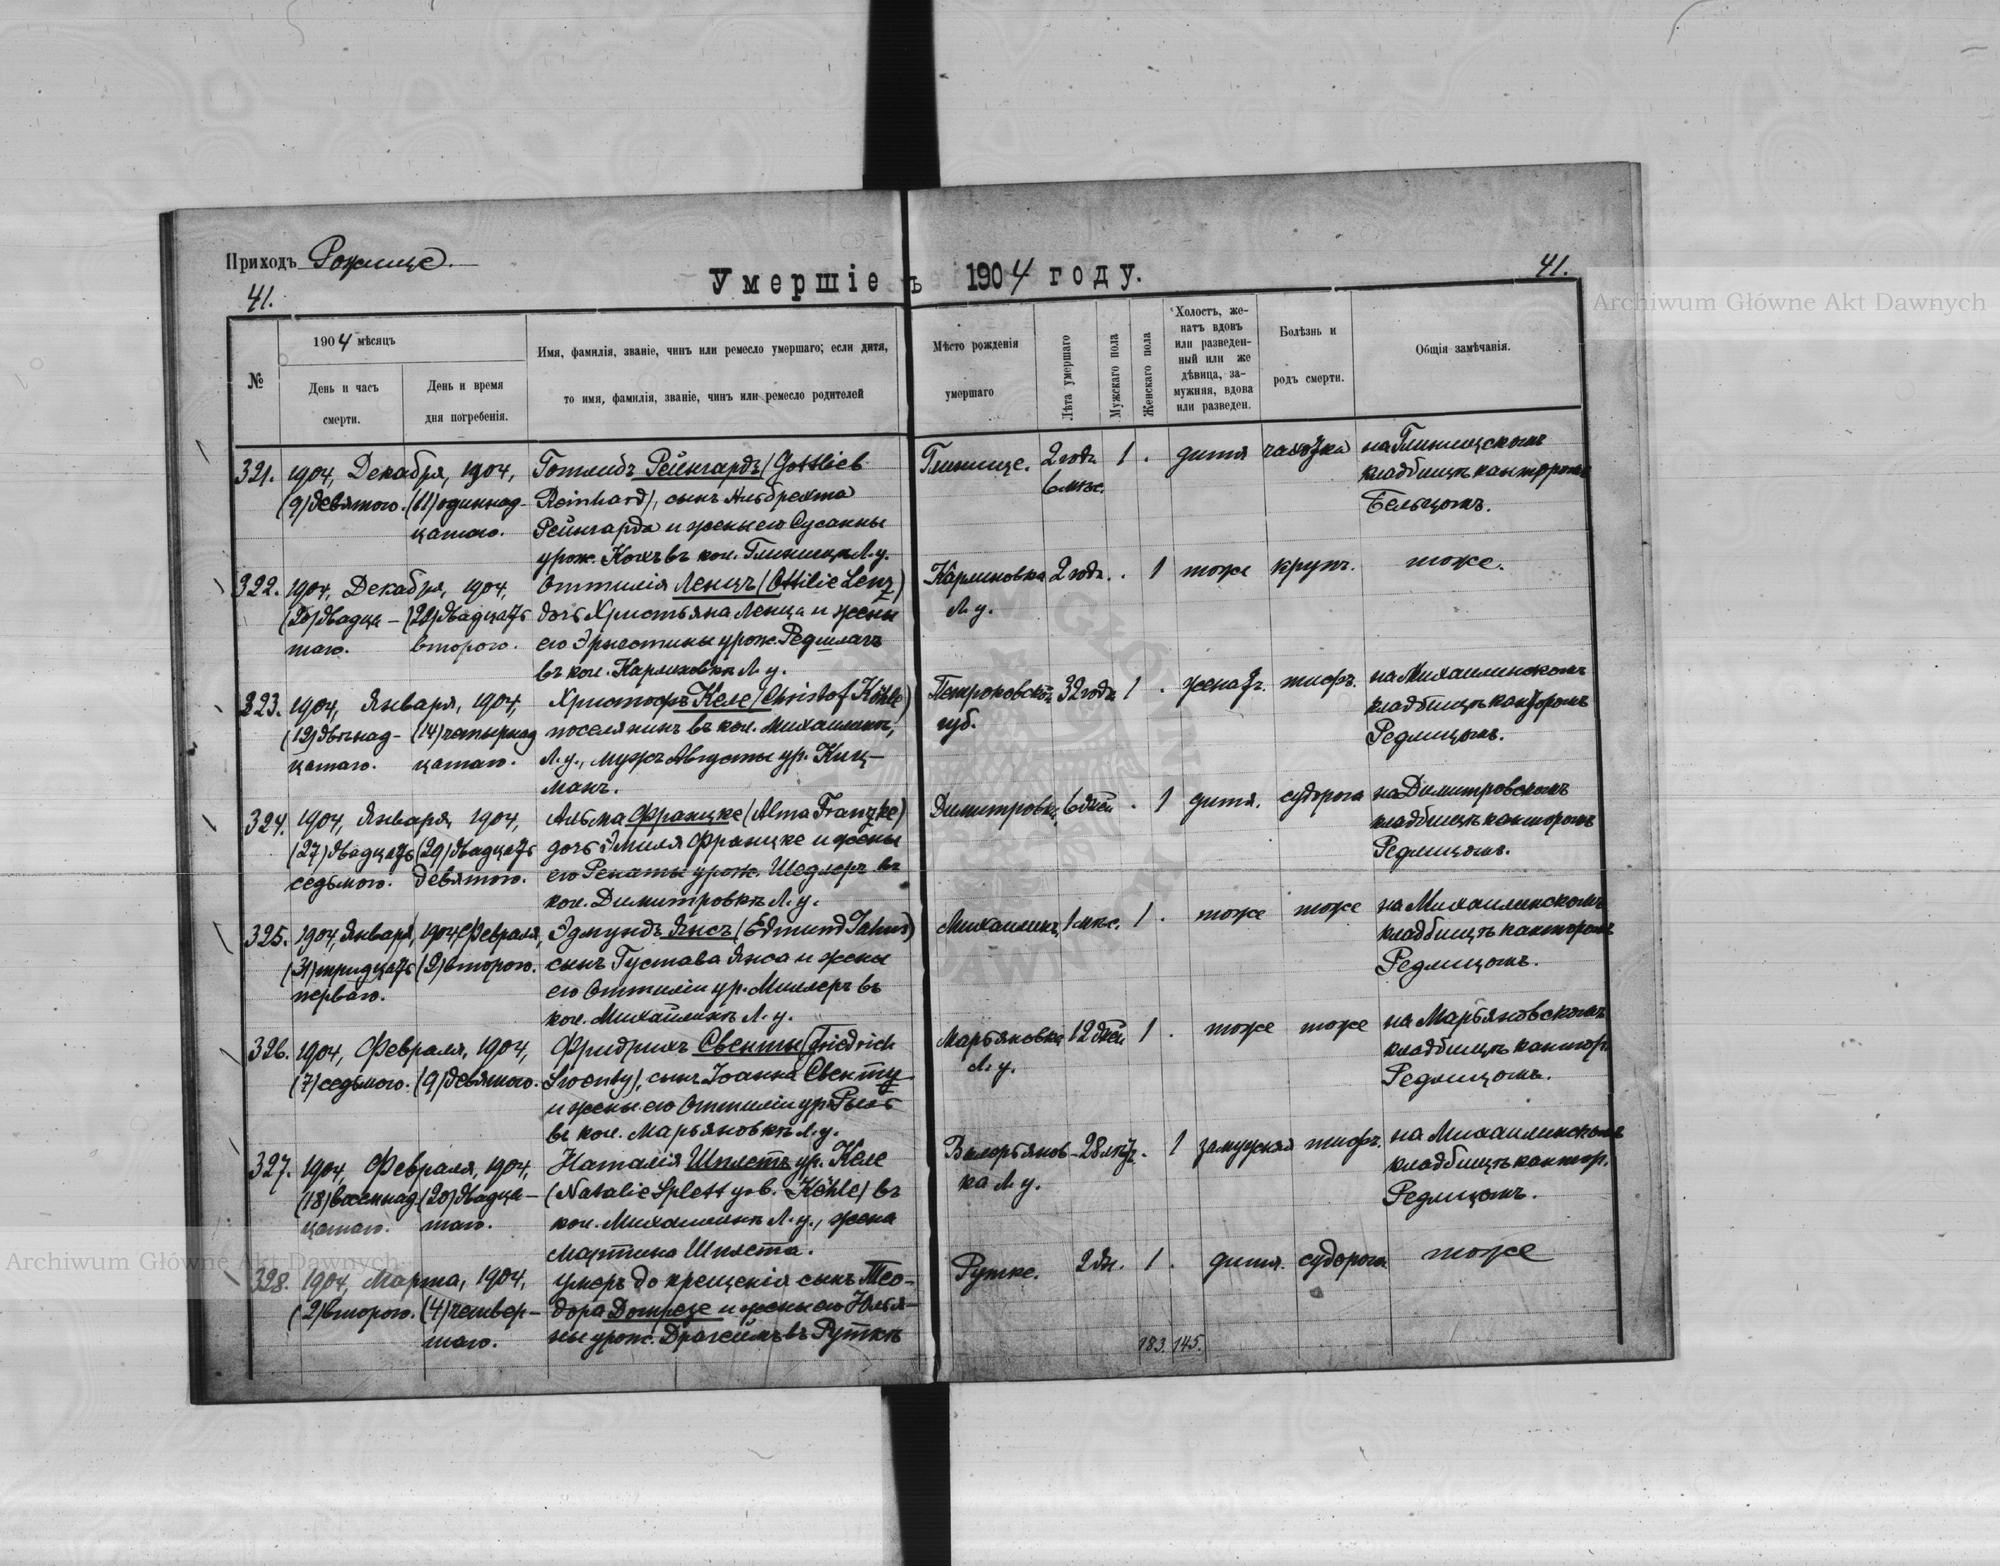 Приходъ Рожище.
Умершіе въ 1904 году.
41.
41.
№
1904 мѣсяцъ
День и часъ
смерти.
День и время
дня погребенія.
Имя, фамилія, званіе, чинъ или ремесло умершаго; если дитя,
то имя, фамилія, званіе, чинъ или ремесло родителей
Мѣсто рожденія
умершаго
Лѣта умершаго
Мужскаго пола
Женскаго пола
Холостъ, же-
натъ вдовъ
или разведен-
ный или же
дѣвица, за-
мужняя, вдова
или разведен.
Болѣзнь и
родъ смерти.
Общія замѣчанія.
321. 1904, Декабря, 1904, Готлибъ Рейнгардъ (Gottlieb Глинище. 2 года 1 . дитя чахотка на Глинищскомъ
(9) девятого. (11) одиннад- Reinhard), сынъ Альбрехта 6 мѣс. кладбищѣ канторомъ
цатого. Рейнгарда и жены его Сусанны Бельцомъ.
урож. Кохъ въ кол. Глинищѣ Л. у.
322. 1904, Декабря, 1904, Оттилія Ленцъ (Ottilie Lenz) Карлиновка 2 года. . 1 тоже крупъ. тоже.
(20) двадца- (22) двадцать дочь Христьяна Ленца и жены Л. у.
таго. второго. его Эрнестины урож. Редшлагъ
въ кол. Карлиновкѣ Л. у.
323. 1904, Января, 1904, Христофъ Келе (Christof Köhle) Петроковской 32 года 1 . женатъ. тифъ. на Михаилинскомъ
(12) двѣнад- (14) четырнад поселянинъ въ кол. Михаилинѣ, губ. кладбищѣ канторомъ
цатаго. цатаго. Л. у., мужъ Августы ур. Киц- Редлицомъ.
манъ.
324. 1904, Января, 1904, Альма Францке (Alma Franzke) Димитровка 6 дней . 1 дитя. судорога на Димитровскомъ
(27) двадцать (29) двадцать дочь Эмиля Францке и жены кладбищѣ канторомъ
седьмого. девятого. его Ренаты урож. Шедлеръ въ Редлицомъ.
кол. Димитровкѣ Л. у.
325. 1904, Января, 1904 Февраля, Эдмундъ Янсъ (Edmund Jahns) Михаилинъ 1 мѣс. 1 . тоже тоже на Михаилинскомъ
(31) тридцать (2) второго. сынъ Густава Янса и жены кладбищѣ канторомъ
перваго. его Оттиліи ур. Миллеръ въ Редлицомъ.
кол. Михайлинѣ Л. у.
326. 1904, Февраля, 1904, Фридрихъ Свенты (Friedrich Марьяновка 12 дней 1 . тоже тоже на Марьяновскомъ
(7) седьмого. (9) девятого. Swenty), сынъ Іоанна Свенты Л. у. кладбищѣ кантор.
и жены его Оттиліи ур. Редлицомъ.
въ кол. Марьяновкѣ Л. у.
327. 1904, Февраля, 1904, Наталія Шплетъ ур. Келе Валерьянов- 28 лѣтъ. . 1 замужняя тифъ. на Михаилинскомъ
(18) восемнад (20) двадца- (Natalie Splett geb. Köhle) въ ка Л. у. кладбищѣ кантор.
цатаго. таго. кол. Михаилинѣ Л. у., жена Редлицомъ.
Мартина Шплета.
328. 1904, Марта, 1904, умеръ до крещенія сынъ Тео- Рутке. 2 дн. 1 . дитя. судорога тоже
(2) второго. (4) четвер- дора и жены его Юлья-
таго. ны урож. въ Руткѣ
183. 145.
Archiwum Główne Akt Dawnych
Archiwum Główne Akt Dawnych